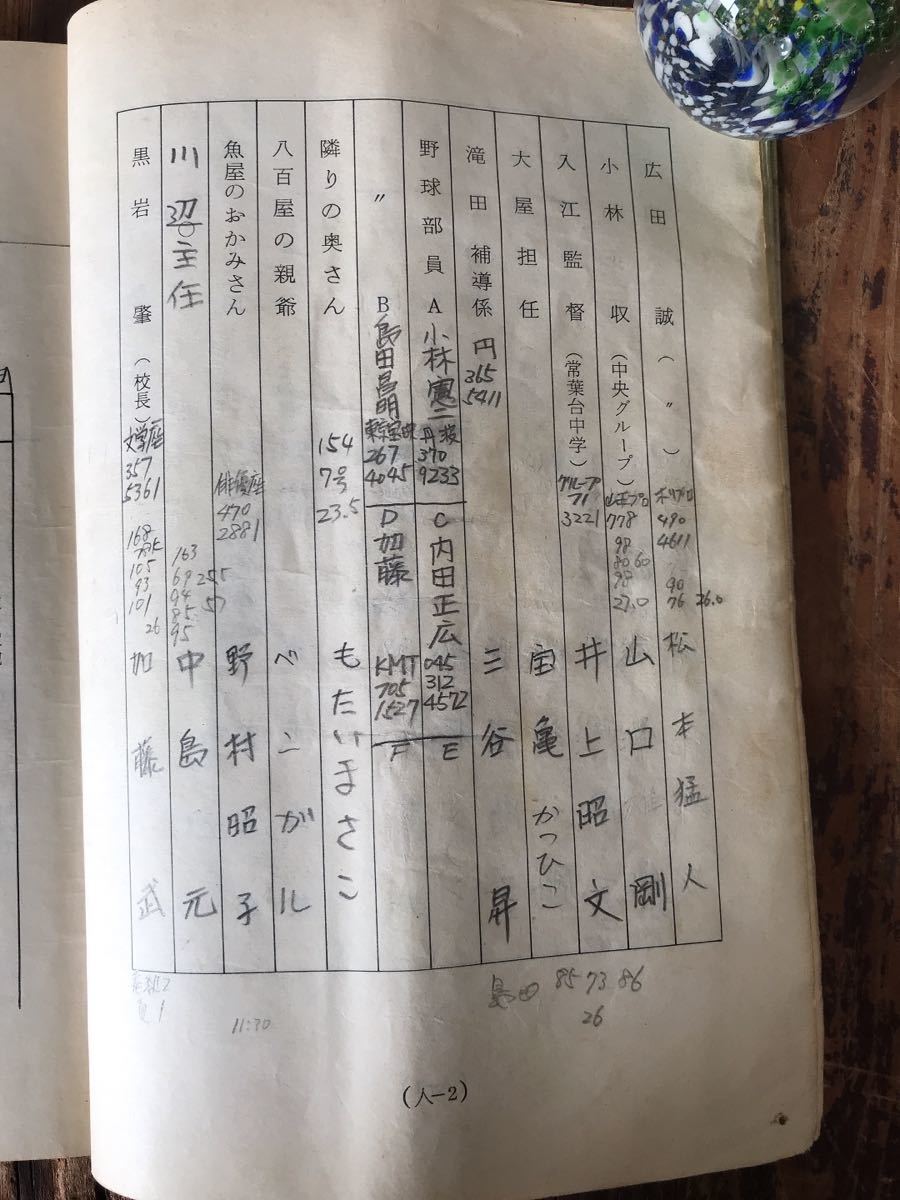 広田 誠 (〃) ホリプロ 490 4611 90 76 26.0 松本猛人
小林 収 (中央グループ) 778 98 80 60 98 27.0 山口 剛
入江監督 (常葉台中学) グループ 71 3221 井上昭文
大屋担任 宝亀かつひこ
滝田補導係 円 365 5411 三谷昇
野球部員 A 小林憲二 丹波 370 9233 C 内田正広 045 312 4572 E
〃 B 島田昌明 267 4045 D 加藤 KMT 705 1527 F
隣りの奥さん 154 7号 23.5 もたいまさこ
八百屋の親爺 ベンガル
魚屋のおかみさん 俳優座 470 2881 野村昭子
川辺主任 163 69 25.5 94 85 57 95 中島元
黒岩 肇 (校長) 文学座 357 5361 168 105 93 101 26 加藤武
島田 85 73 86
26
11:30
(人-2)